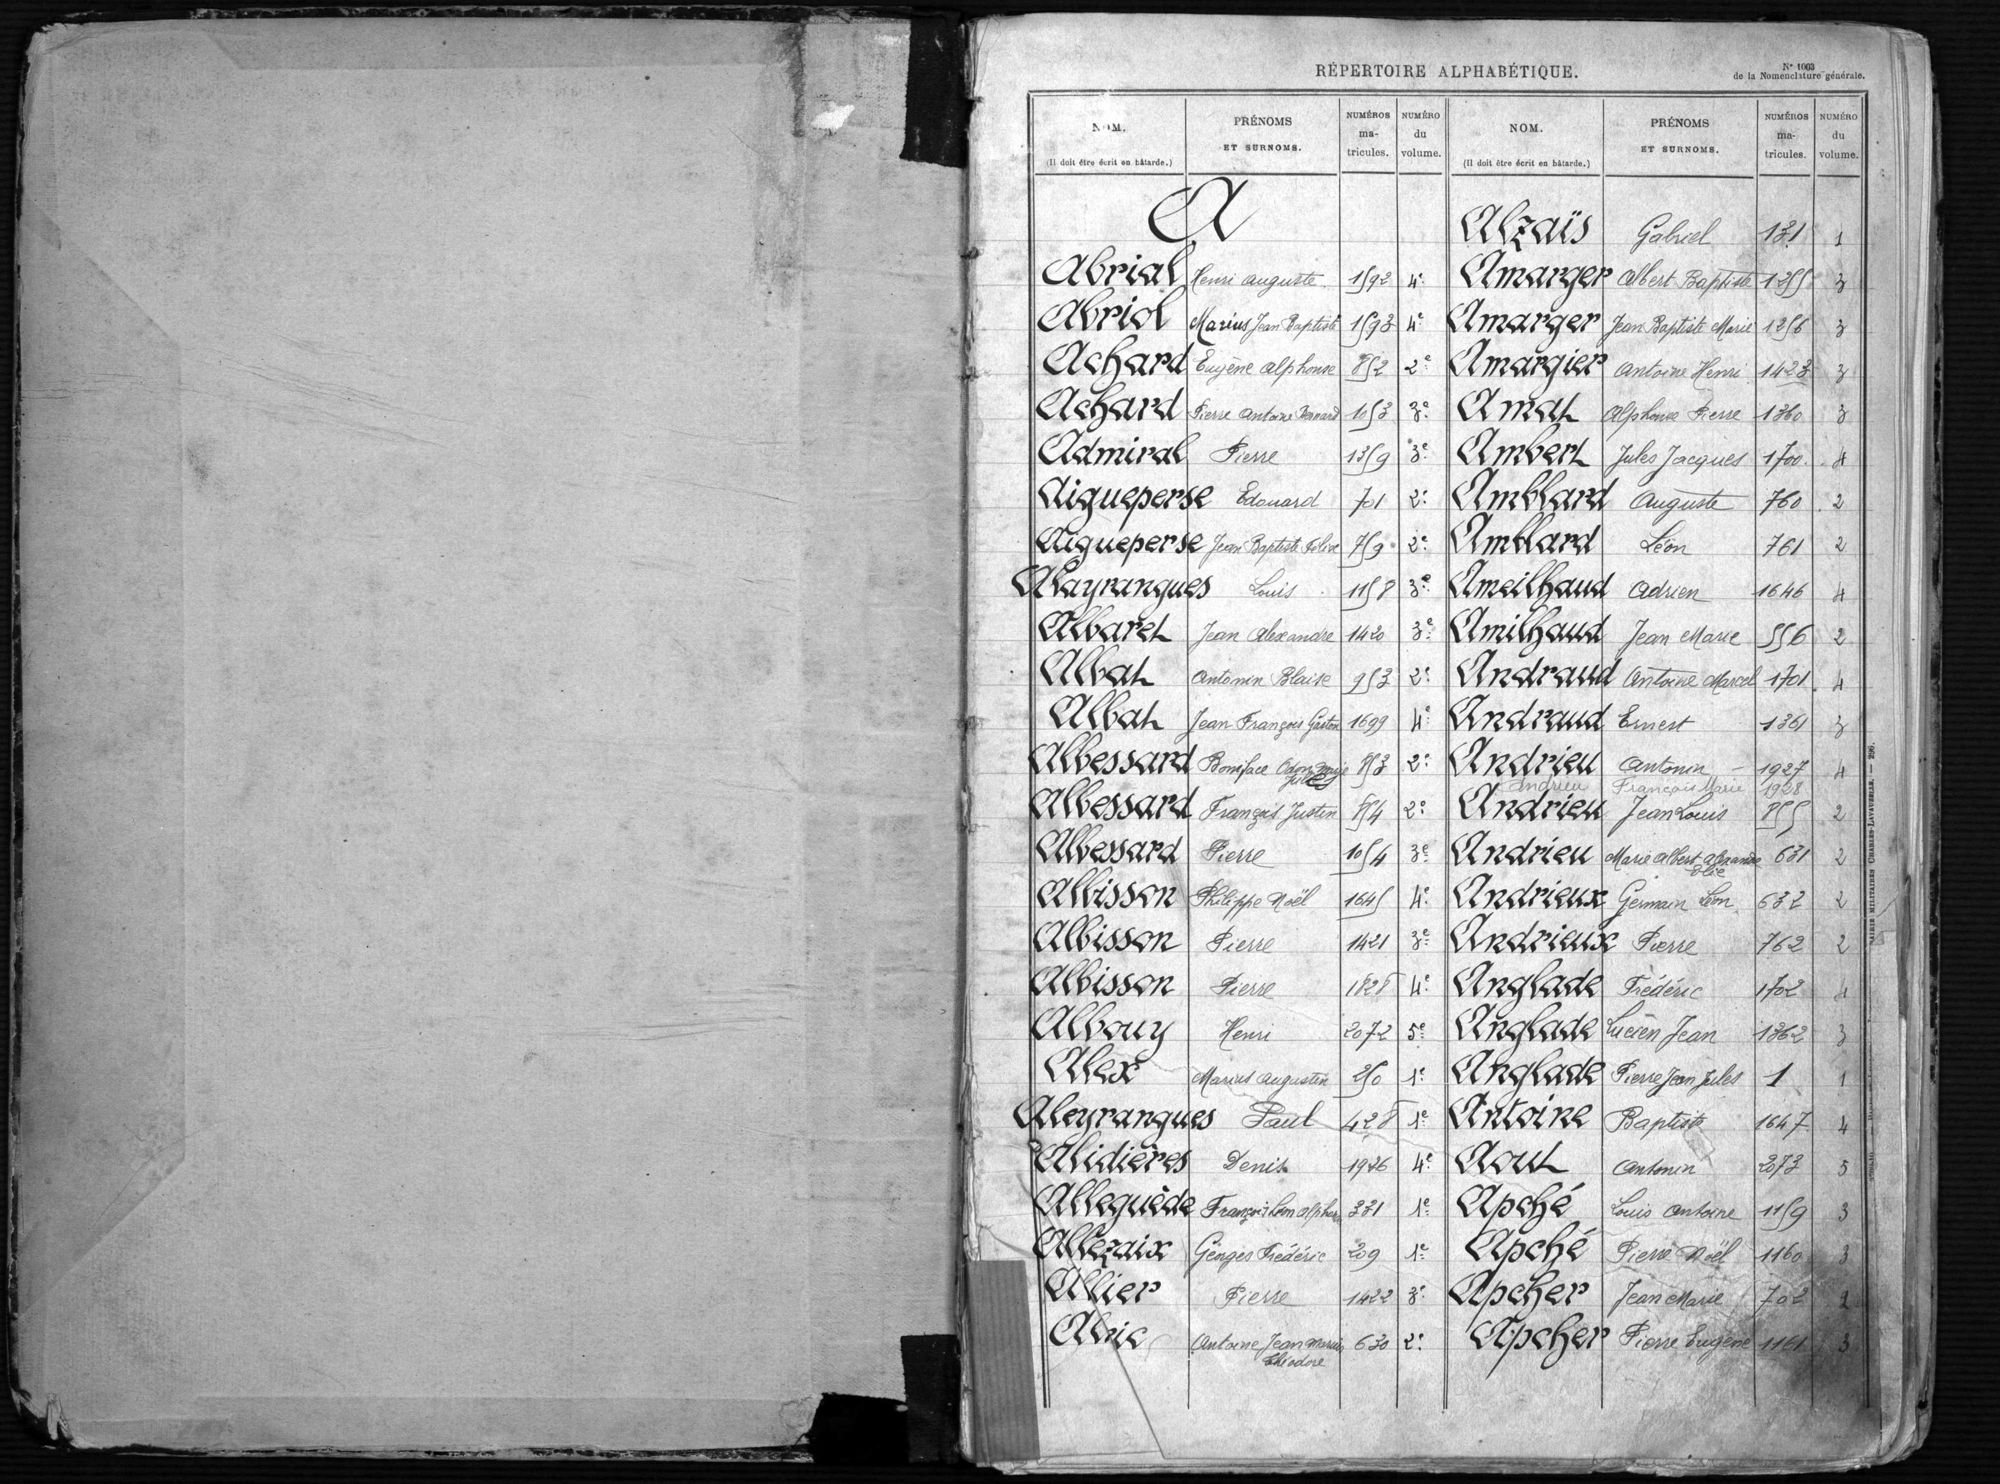 RÉPERTOIRE ALPHABÉTIQUE.
N° 1003
de la Nomenclature générale.
NOM. PRÉNOMS NUMÉROS NUMÉRO NOM. PRÉNOMS NUMÉROS NUMÉRO
ET SURNOMS. ma- du ET SURNOMS. ma- du
(Il doit être écrit en bâtarde.) tricules. volume. (Il doit être écrit en bâtarde.) tricules. volume.
A
Abrial Henri Auguste 1592 4e
Abriol Marius Jean Baptiste 1593 4e
Achard Eugène Alphonse 852 2e
Achard Pierre Antoine Bernard 1053 3e
Admiral Pierre 1359 3e
Aigueperse Edouard 701 2e
Aigueperse Jean Baptiste 759 2e
Alayrangues Louis 1158 3e
Albaret Jean Alexandre 1420 3e
Albat Antonin Blaise 953 2e
Albat Jean François Gaston 1699 4e
Albessard Boniface Odon Marie 853 2e
Jules
Albessard François Justin 854 2e
Albessard Pierre 1054 3e
Albisson Philippe Noël 1645 4e
Albisson Pierre 1421 3e
Albisson Pierre 1828 4e
Albouy Henri 2072 5e
Alex Marius Augustin 250 1e
Aleyrangues Paul 428 1e
Alidières Denis 1926 4e
Alleguède François Léon Alphonse 331 1e
Allezaix Georges Frédéric 209 1e
Allier Pierre 1422 3e
Alric Antoine Jean Marius 630 2e
Théodore
Alzaïs Gabriel 131 1
Amarger Albert Baptiste 1255 3
Amarger Jean Baptiste Marie 1256 3
Amargier Antoine Henri 1423 3
Amat Alphonse Pierre 1360 3
Ambert Jules Jacques 1700 4
Amblard Auguste 760 2
Amblard Léon 761 2
Ameilhaud Adrien 1646 4
Amilhaud Jean Marie 556 2
Andraud Antoine Marcel 1701 4
Andraud Ernest 1361 3
Andrieu Antonin 1927 4
Andrieu François Marie 1928
Andrieu Jean Louis 855 2
Andrieu Marie Albert Alexandre 631 2
Elie
Andrieux Germain Léon 632 2
Andrieux Pierre 762 2
Anglade Frédéric 1702 4
Anglade Lucien Jean 1362 3
Anglade Pierre Jean Jules 1 1
Antoine Baptiste 1647 4
Aout Antonin 2073 5
Apché Louis Antoine 1159 3
Apché Pierre Noël 1160 3
Apcher Jean Marie 702 2
Apcher Pierre Eugène 1161 3
MILITAIRES CHARLES-LAVAUZELLE. — 296.